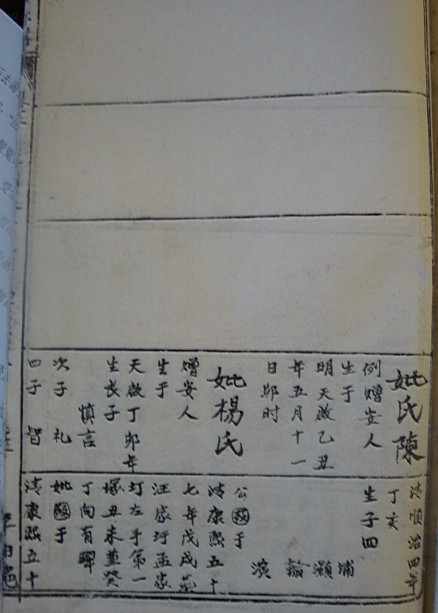 妣氏陳
例贈安人
生于
明天啟乙丑
年五月十一
日卯时
妣楊氏
贈安人
生于
天啟丁卯年
生長子
慎言
次子 礼
四子 智
清順治四年
丁亥
生子四
浦
灝
公國于
清康熙五十
七年戊戌葬
汪盛圩孟家
圢左手第一
塚丑未兼癸
丁向有碑
妣國于
清康熙五十